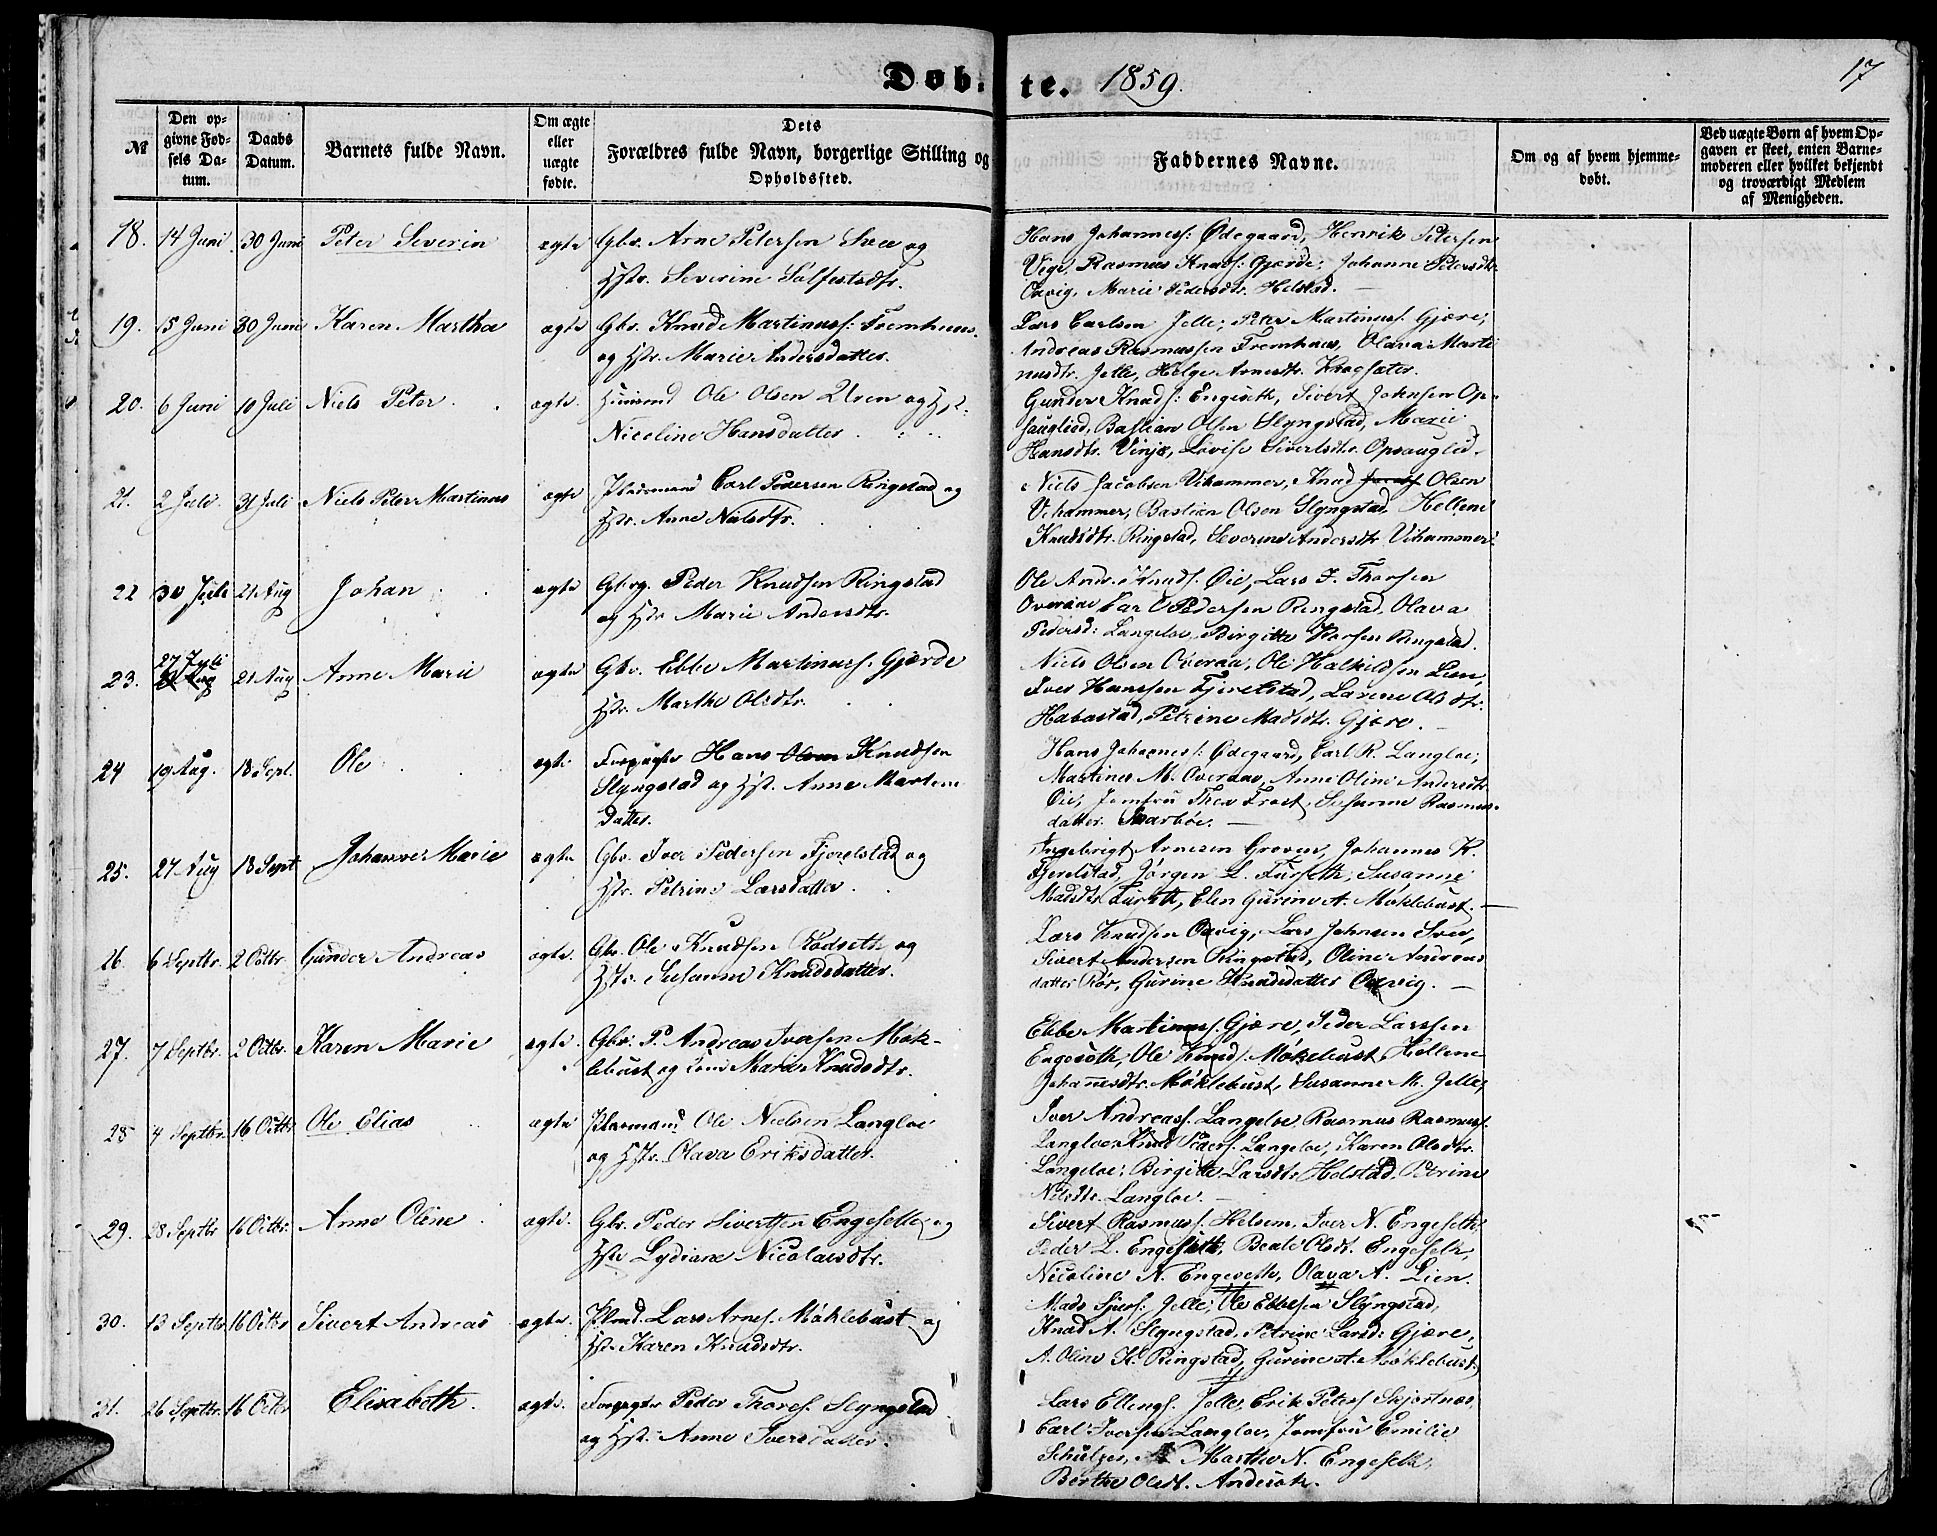 Døb-te. 1859. 17
№
Den opgivne Fødsels Datum.
Daabs Datum.
Barnets fulde Navn.
Om ægte eller uægte fødte.
Dets Forældres fulde Navn, borgerlige Stilling og Opholdssted.
Faddernes Navne.
Om og af hvem hjemmedøbt.
Ved uægte Børn af hvem Opgaven er skeet, enten Barnemoderen eller hvilket bekjendt og troværdigt Medlem af Menigheden.
18. 14 Juni 30 Juni Peter Severin ægte Gbr. Arne Petersen Svee og
Hstr. Severine Sølfestsdtr.
Hans Johanness: Ødegaard, Henrik Petersen
Vige, Rasmus Knuds: Gjærde; Johanne Petersdtr.
Odvig, Marie Pedersdtr. Helstad.
19. 15 Juni 30 Juni Karen Martha ægte Gbr. Knud Martinuss: Fremhuus
og Hstr. Marie Andersdatter.
Lars Carlsen Jelle; Peter Martinuss. Gjære;
Andreas Rasmussen Fremhuus, Olava Marti-
nusdtr. Jelle, Helge Arnesdtr. Krogsæter.
20. 6 Juni 10 Juli Niels Peter ægte. Huusmd Ole Olsen Uren og Hst:
Nicoline Hansdatter
Gunder Knuds: Engeseth, Sivert Johnsen Op-
sauglied, Bastian Olsen Slyngstad, Marie
Hansdtr. Vinje, Lovise Sivertsdtr. Opsauglid.
21. 2 Juli 31 Juli Niels Peter Martinus ægte Pladsmand Carl Pedersen Ringstad og
Hstr. Anne Nielsdtr.
Niels Jacobsen Vihammer, Knud Olsen
Vihammer, Bastian Olsen Slyngstad, Hellene
Knudsdtr. Ringstad, Severine Andersdtr Vihammer
22 30 Juli 21 Aug Johan ægte Gbrug. Peder Knudsen Ringstad
og Hstr Marie Andersdtr.
Ole And. Knuds. Øie, Lars J. Thorsen
Overaae Carl Pedersen Ringstad, Olava
Pedersd: Langeloe, Birgitte Thorsen Ringstad.
23. 27 Juli 21 Aug Anne Marie ægte Gbr. Ebbe Martinuss. Gjærde
Hstr. Marthe Olsdtr.
Niels Olsen Overaa, Ole Halkildsen Lien,
Iver Hanssen Fjerelstad, Larine Olsdtr.
Habostad, Petrine Madsdtr. Gjære.
24 19 Aug. 18 Sept. Ole ægte Forpagter Hans Knudsen
Slyngstad og Hst. Anne Martens
Datter.
Hans Johanness: Ødegaard, Carl R. Langloe;
Martinus M. Overaae, Anne Oline Andersdtr
Øie, Jomfru Thea Frost, Susanne Rasmus-
datter. Skarbøe.
25. 27 Aug 18 Sept Johanne Marie ægte Gbr. Iver Pedersen Fjerelstad og
Hstr. Petrine Larsdatter
Ingebrigt Arnesen Groven, Johannes K.
Fjerelstad, Jørgen L. Furseth, Susanne
Madsdtr Furseth, Elen Gurine A. Møklebust.
26. 6 Septbr. 2 Octbr. Gunder Andreas ægte. Gbr. Ole Knudsen Rødseth og
Hstr. Susanne Knudsdatter.
Lars Knudsen Odvig, Lars Johnsen Svee,
Sivert Andersen Ringstad, Oline Andreas
datter Rør, Gurine Knudsdatter Odvig.
27. 7 Septbr. 2 Octbr. Karen Marie ægte. Gbr. P. Andreas Iversen Møk-
lebust og Maria Knudsdtr.
Ebbe Martinuss. Gjære, Peder Larssen
Engeseth, Ole Knuds. Møklebust, Hellene
Johannesdtr. Møklebust, Susanne M. Jelle,
28 4 Septbr. 16 Octbr Ole Elias ægte Pladsmand Ole Nielsen Langloe
og Hstr. Olava Eriksdatter.
Iver Andreass. Langeloe, Rasmus Rasmuss.
Langloe Knud Peders. Langeloe, Karen Olsdtr.
Langeloe; Birgitte Larsdtr Helstad, Petrine
Nilsdtr. Langloe.
29. 28 Septbr 16 Octbr. Anne Oline ægte. Gbr. Peder Sivertsen Engeseth og
Hstr Lydiane Nicolaisdtr.
Sivert Rasmuss. Helsem, Iver N. Engeseth
Peder L. Engeseth, Beate Olsdt. Engeseth,
Nicoline N. Engeseth, Olava A. Lien.
30. 13 Septbr 16 Octbr Sivert Andreas ægte. Plmd. Lars Arnes. Møklebust og
Hst. Karen Knudsdtr.
Mads Sjurs: Jelle; Ole Ebbesen Slyngstad,
Knud A. Slyngstad, Petrine Larsd: Gjære,
A. Oline K. Ringstad, Gurine A. Møklebust
31. 26 Septbr. 16 Octbr Elisabeth. ægte. Forpagter Peder Thores. Slyngstad
og Hst. Anne Iversdatter.
Lars Ellings. Jelle, Erik Peters Skjortnæs,
Carl Iversen Langloe, Jomfru Emilie
Schultzes, Marthe N. Engeseth,
Berthe Olsdt. Anderseth.